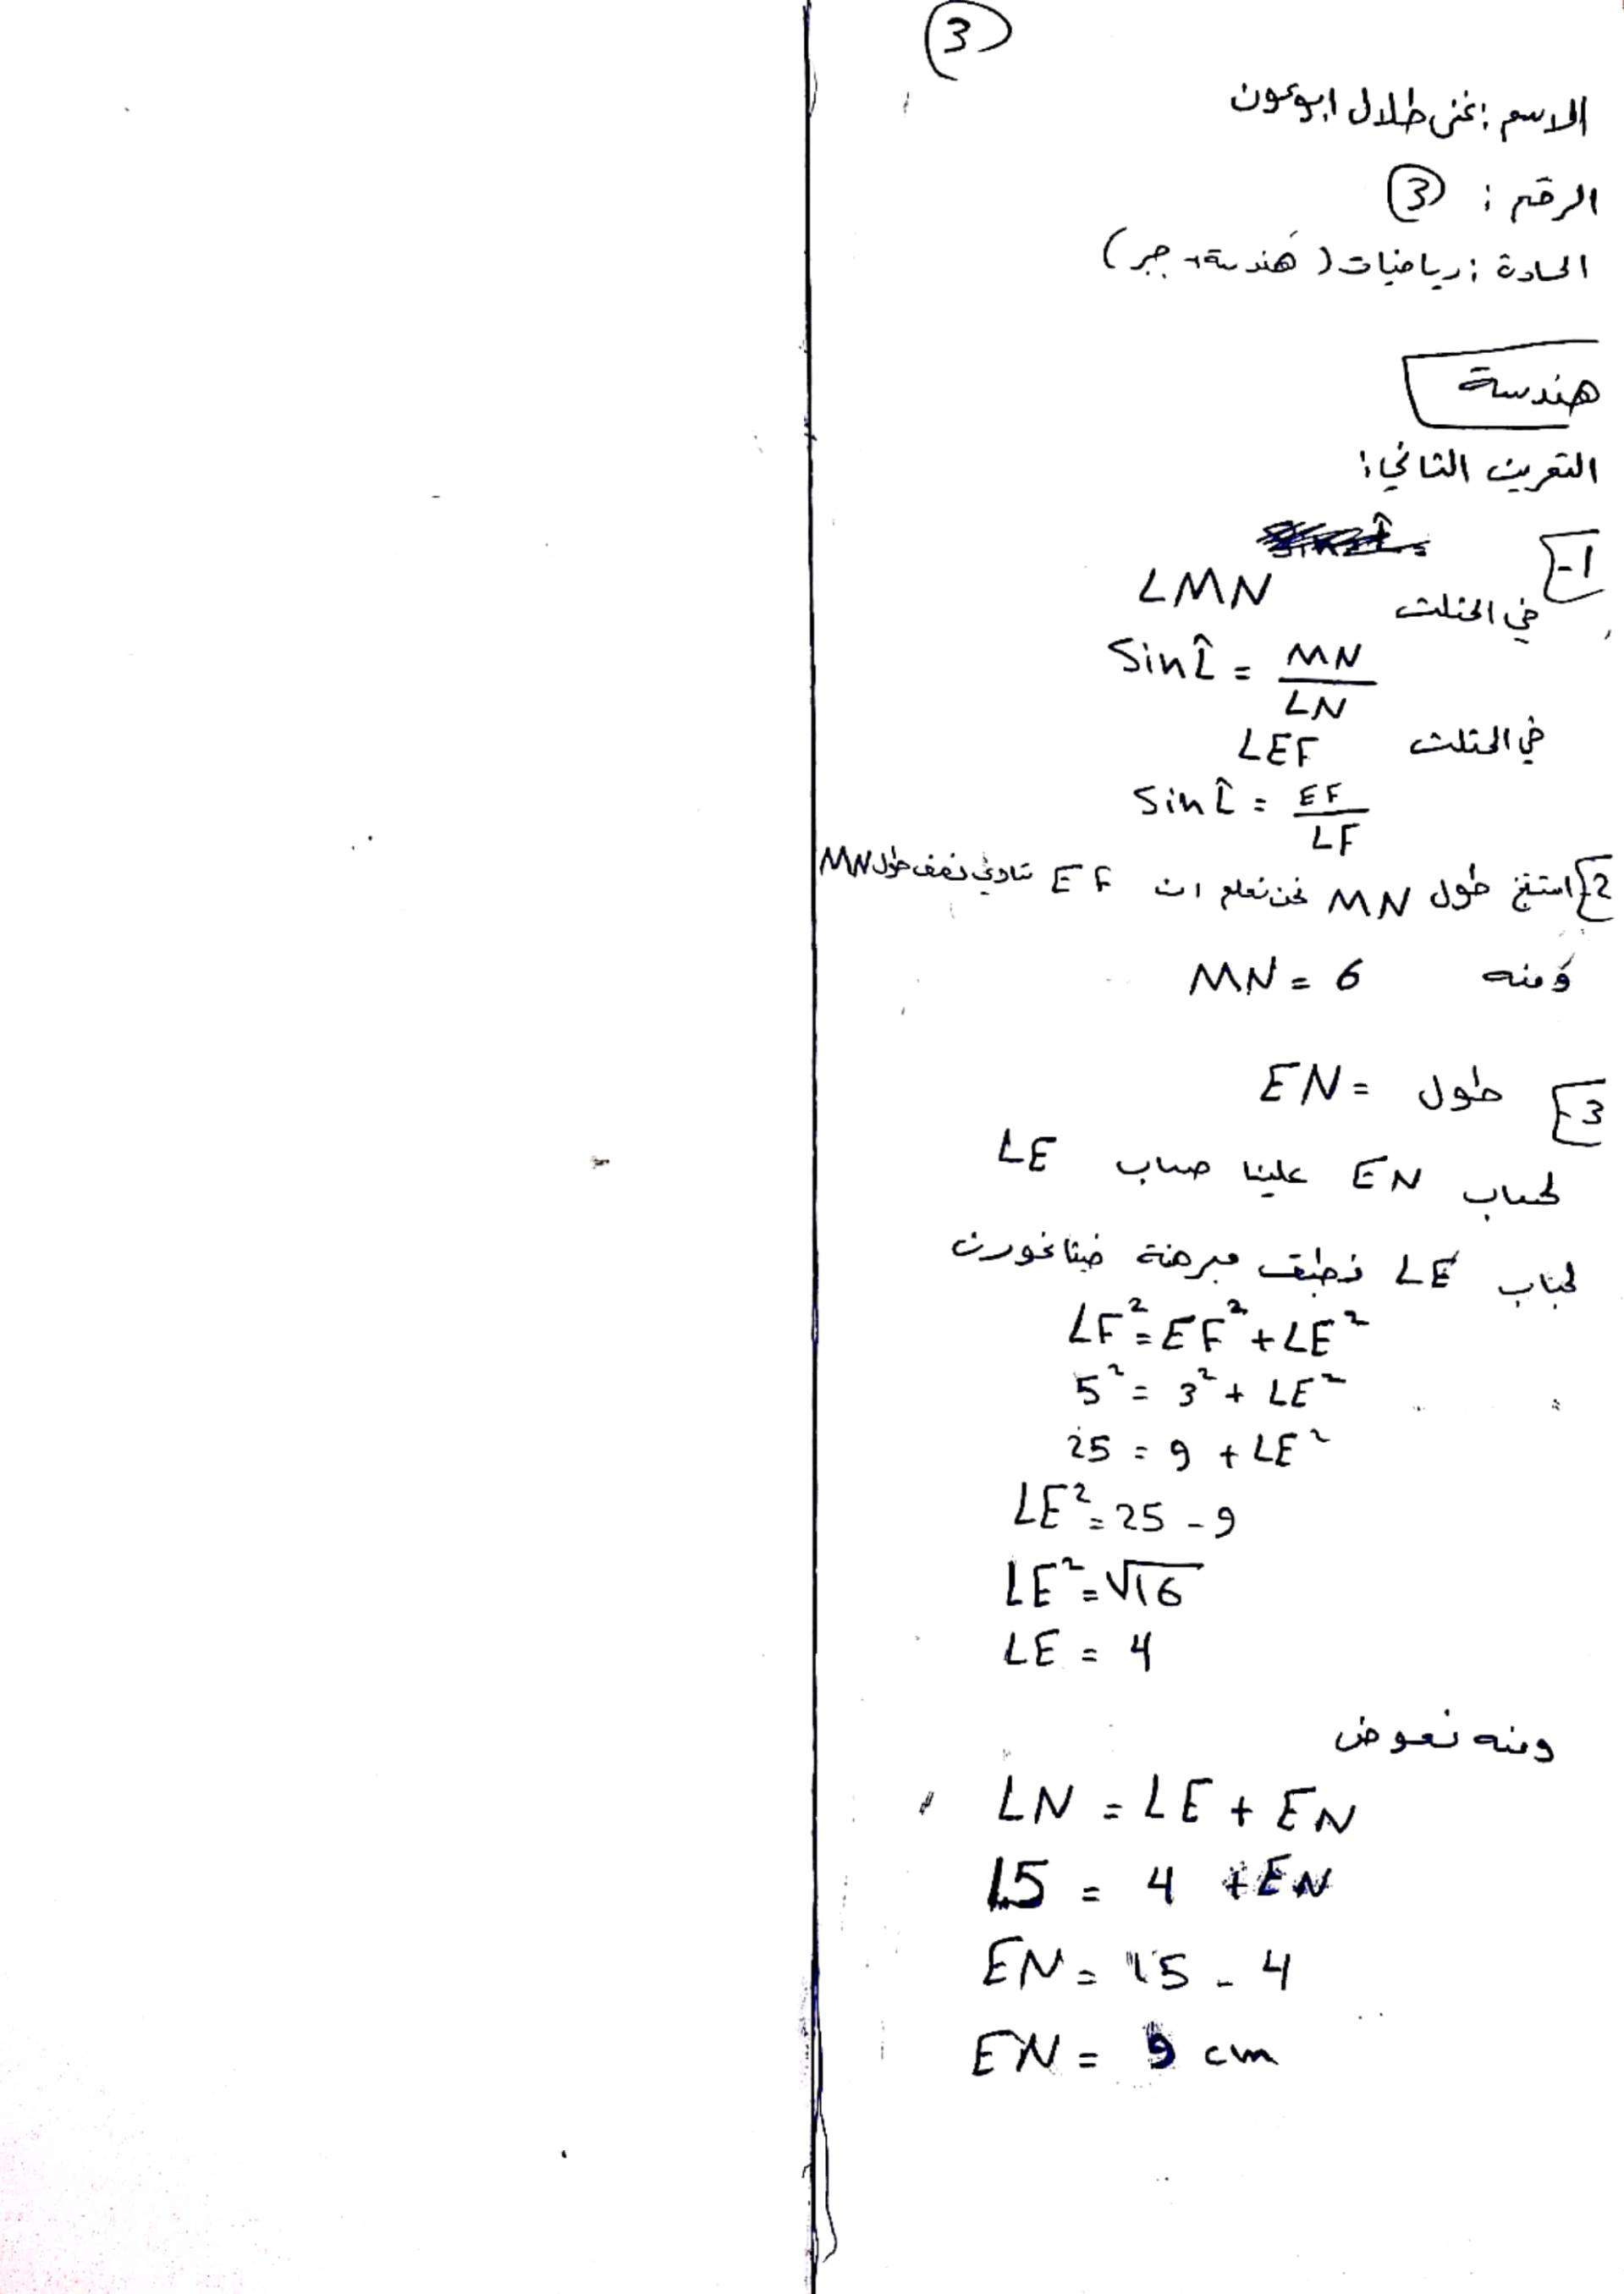 3
الاسم : غنى طلال ابو عون
الرقم : 3
المادة : رياضيات ( هندسة + جبر )
هندسة
التمرين الثاني :
1-
في المثلث LMN
Sin L̂ = MN / LN
في المثلث LEF
Sin L̂ = EF / LF
2- استنتج طول MN نحن نعلم ان EF تساوي نصف طول MN
ومنه MN = 6
3- طول EN =
لحساب EN علينا حساب LE
لحساب LE نطبق مبرهنة فيثاغورث
LF² = EF² + LE²
5² = 3² + LE²
25 = 9 + LE²
LE² = 25 - 9
LE² = √16
LE = 4
ومنه نعوض
LN = LE + EN
15 = 4 + EN
EN = 15 - 4
EN = 9 cm